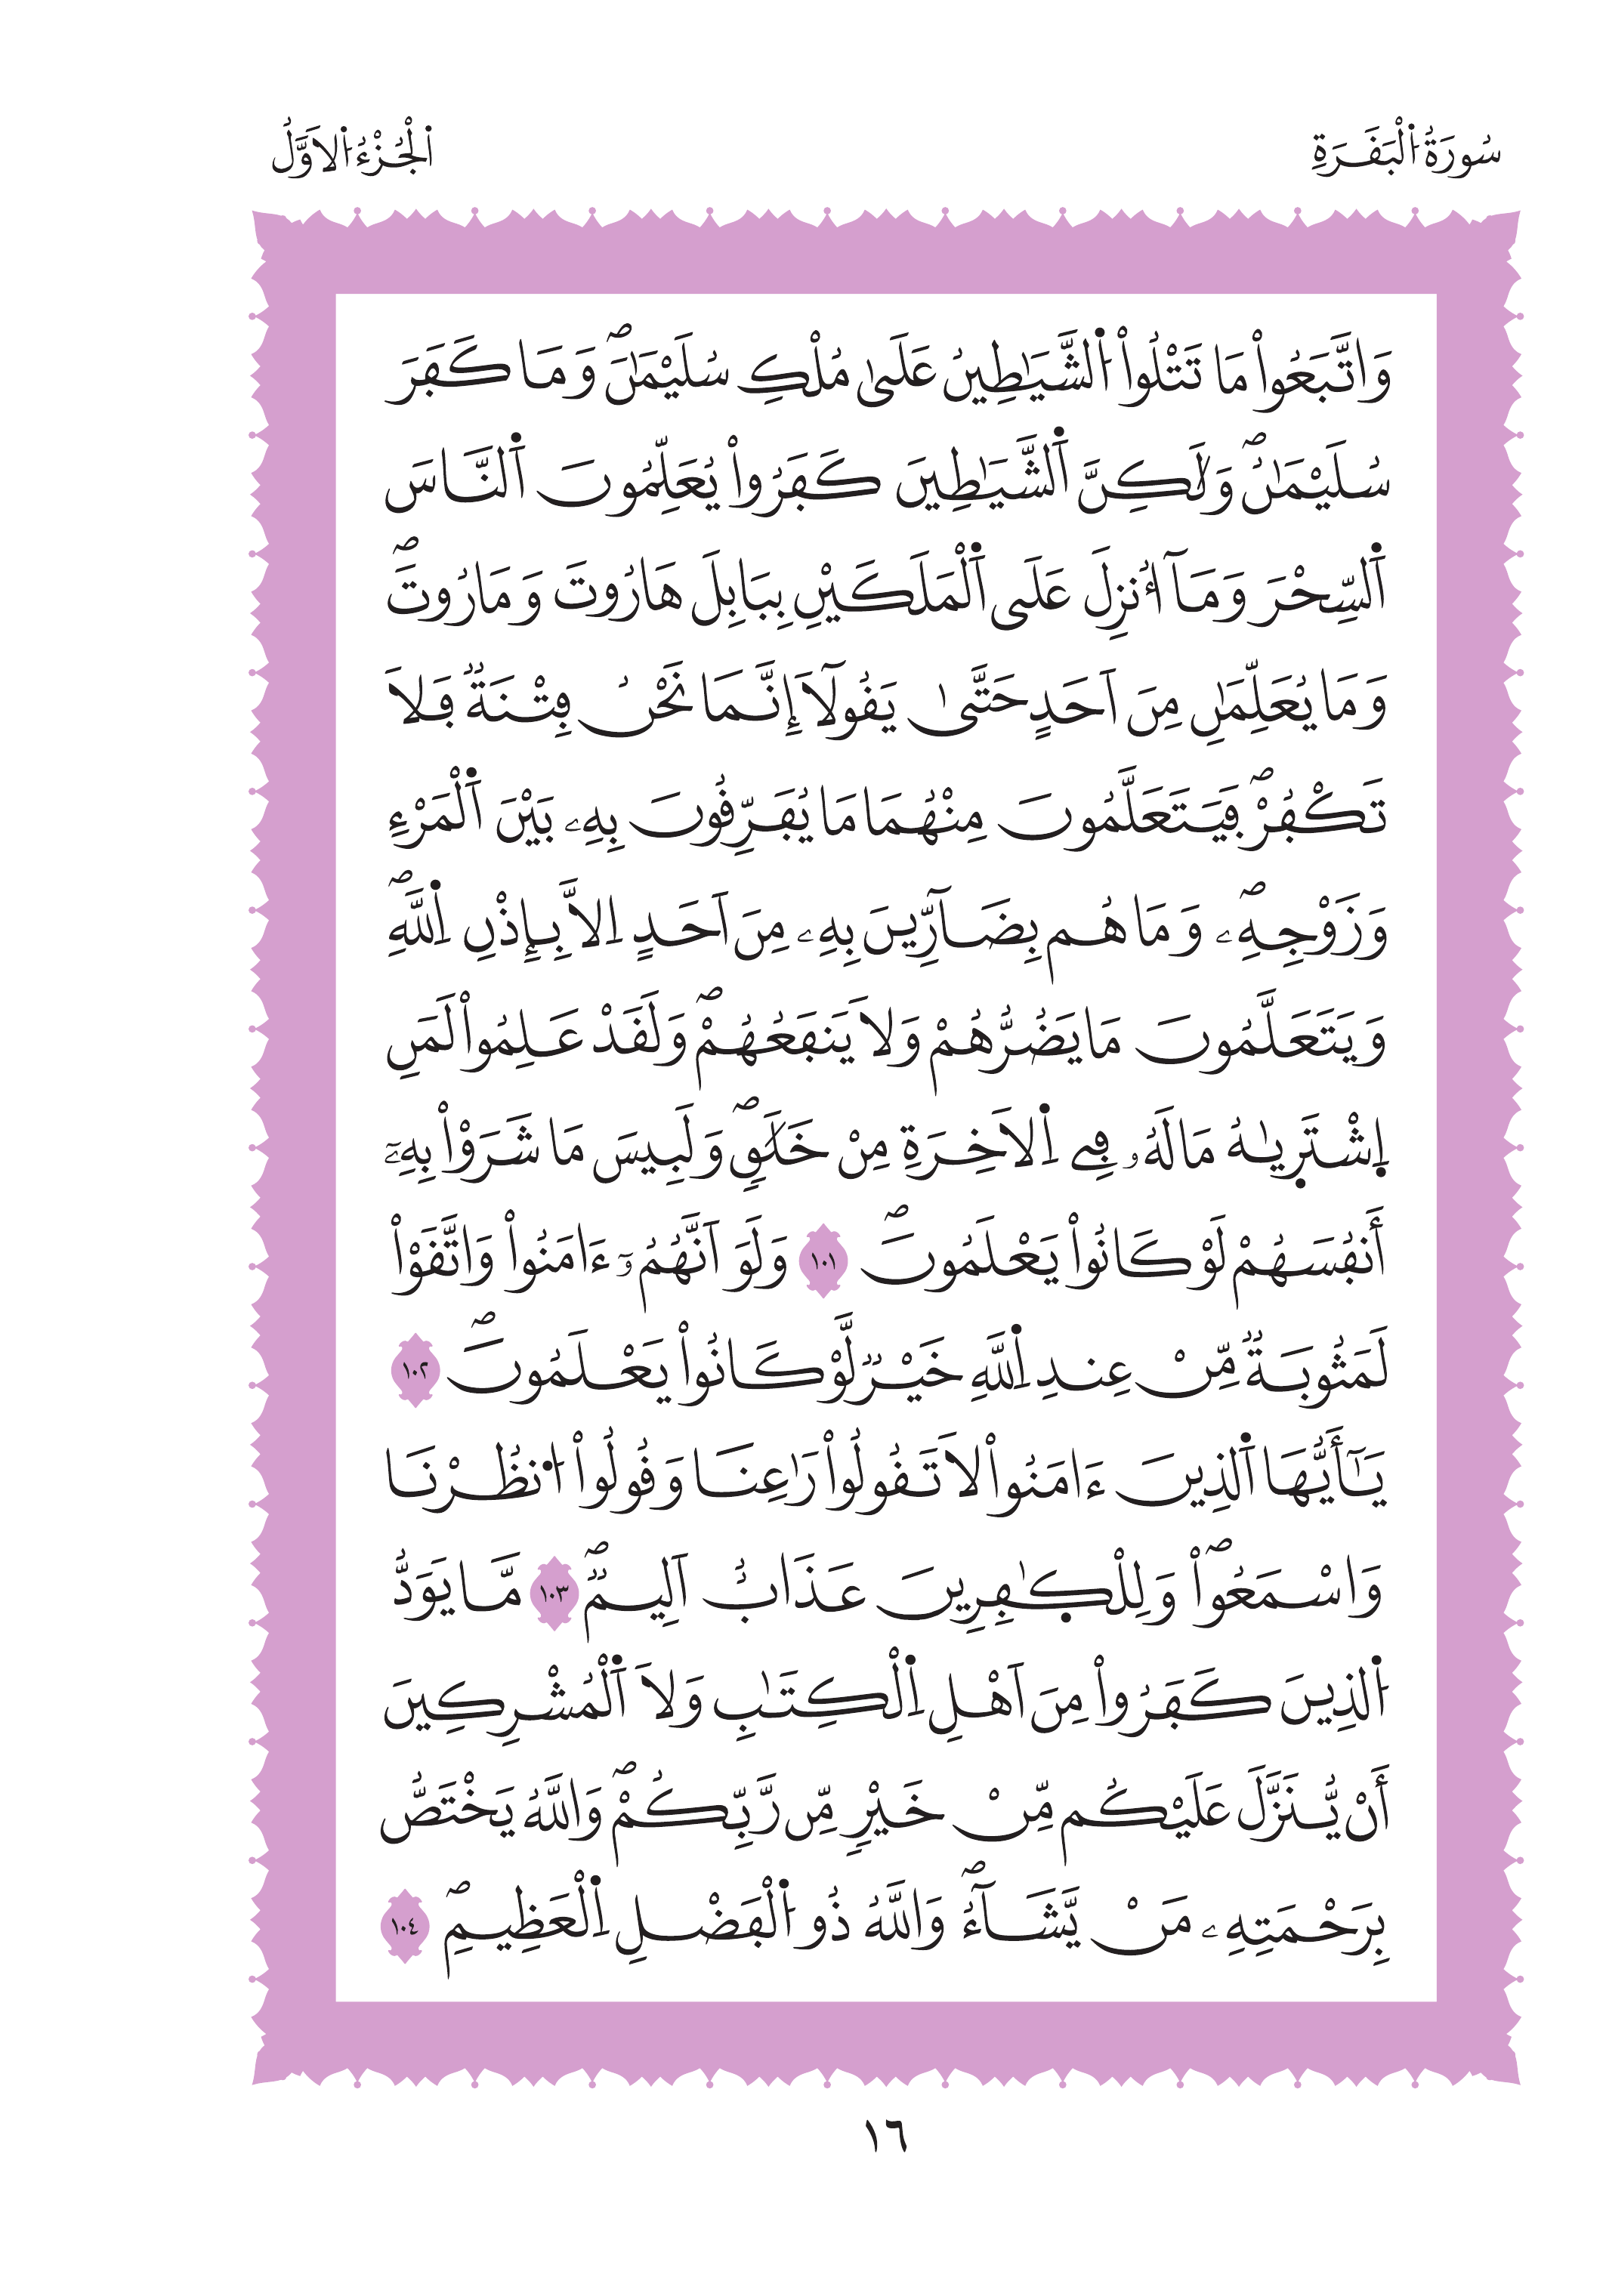 سُورَةُ اُ۬لْبَقَرَةِ
اَ۬لْجُزْءُ اُ۬لَاوَّلُ
وَاتَّبَعُواْ مَا تَتْلُواْ اُ۬لشَّيَٰطِينُ عَلَىٰ مُلْكِ سُلَيْمَٰنَۖ وَمَا كَفَرَ
سُلَيْمَٰنُۖ وَلَٰكِنَّ اَ۬لشَّيَٰطِينَ كَفَرُواْ يُعَلِّمُونَ اَ۬لنَّاسَ
اَ۬لسِّحْرَ وَمَآ أُنزِلَ عَلَى اَ۬لْمَلَكَيْنِ بِبَابِلَ هَارُوتَ وَمَارُوتَۖ
وَمَا يُعَلِّمَٰنِ مِنَ اَحَدٍ حَتَّىٰ يَقُولَآ إِنَّمَا نَحْنُ فِتْنَةٞ فَلَا
تَكْفُرْۖ فَيَتَعَلَّمُونَ مِنْهُمَا مَا يُفَرِّقُونَ بِهِۦ بَيْنَ اَ۬لْمَرْءِ
وَزَوْجِهِۦۖ وَمَا هُم بِضَآرِّينَ بِهِۦ مِنَ اَحَدٍ اِلَّا بِإِذْنِ اِ۬للَّهِۖ
وَيَتَعَلَّمُونَ مَا يَضُرُّهُمْ وَلَا يَنفَعُهُمْۖ وَلَقَدْ عَلِمُواْ لَمَنِ
اِ۪شْتَر۪يٰهُ مَا لَهُۥ فِے اِ۬لَاخِرَةِ مِنْ خَلَٰقٖۖ وَلَبِيسَ مَا شَرَوْاْ بِهِۦٓ
أَنفُسَهُمْ لَوْ كَانُواْ يَعْلَمُونَۖ ١٠١ وَلَوَ اَنَّهُمُۥٓ ءَامَنُواْ وَاتَّقَوْاْ
لَمَثُوبَةٞ مِّنْ عِندِ اِ۬للَّهِ خَيْرٞ لَّوْ كَانُواْ يَعْلَمُونَۖ ١٠٢
يَٰٓأَيُّهَا اَ۬لذِينَ ءَامَنُواْ لَا تَقُولُواْ رَٰعِنَا وَقُولُواْ اُ۟نظُرْنَا
وَاسْمَعُواْۖ وَلِلْكٰ۪فِرِينَ عَذَابٌ اَلِيمٞۖ ١٠٣ مَّا يَوَدُّ
اُ۬لذِينَ كَفَرُواْ مِنَ اَهْلِ اِ۬لْكِتَٰبِ وَلَا اَ۬لْمُشْرِكِينَ
أَنْ يُّنَزَّلَ عَلَيْكُم مِّنْ خَيْرٖ مِّن رَّبِّكُمْۖ وَاللَّهُ يَخْتَصُّ
بِرَحْمَتِهِۦ مَنْ يَّشَآءُۖ وَاللَّهُ ذُو اُ۬لْفَضْلِ اِ۬لْعَظِيمِۖ ١٠٤
١٦